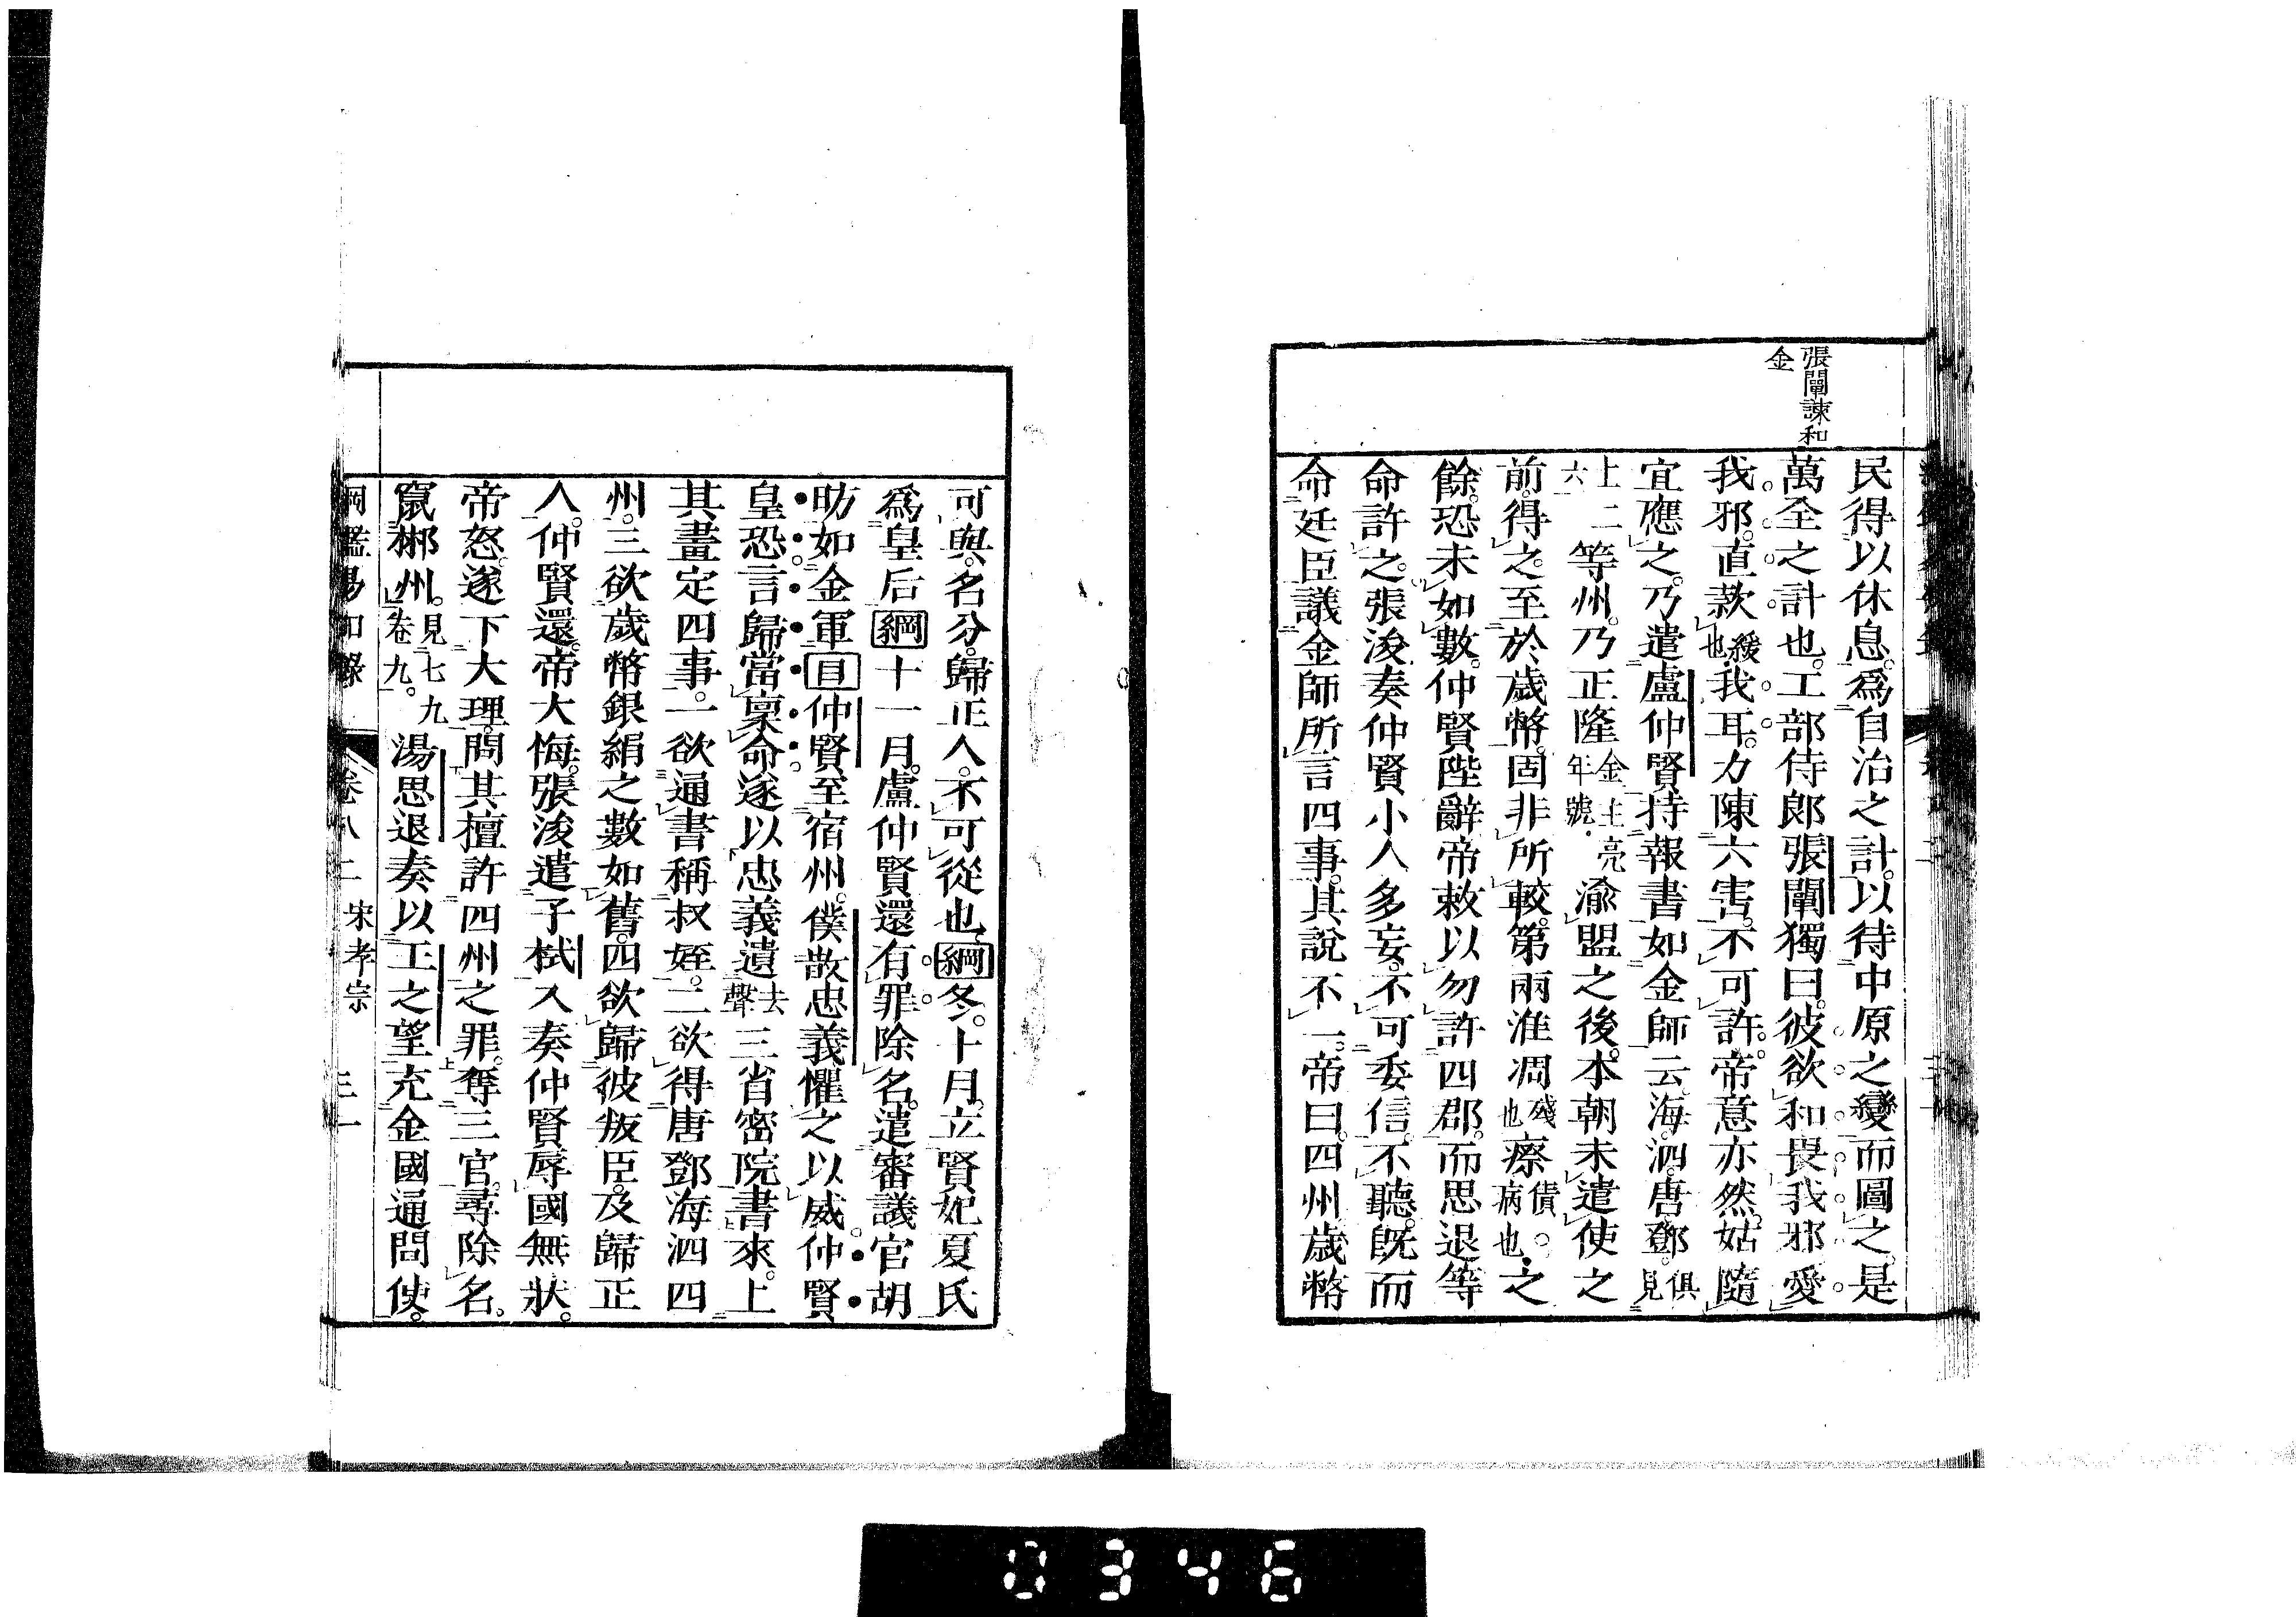 張闡諫和
金
民得以休息。爲自治之計。以待中原之變而圖之。是
萬全之計也。工部侍郎張闡獨曰。彼欲和畏我邪愛
我邪。直款緩也我耳。力陳六害。不可許。帝意亦然。姑隨
宜應之。乃遣盧仲賢持報書如金師云。海。泗。唐。鄧。俱見
上二六等州。乃正隆金主亮年號。渝盟之後。本朝未遣使之
前。得之。至於歲幣。固非所較。第兩淮凋殘也瘵債病也。之
餘。恐未如數。仲賢陛辭。帝敕以勿許四郡。而思退等
命許之。張浚奏仲賢小人多妄。不可委信。不聽。旣而
命廷臣議金師所言四事。其說不一。帝曰。四州歲幣
可與。名分。歸正人。不可從也。綱冬。十月。立賢妃夏氏
爲皇后綱十一月。盧仲賢還有罪除名。遣審議官胡
昉如金軍目仲賢至宿州。僕散忠義懼之以威。仲賢
皇恐言歸當稟命。遂以忠義遺去聲三省密院書來。上
其畫定四事。一欲通書稱叔姪。二欲得唐鄧海泗四
州。三欲歲幣銀絹之數如舊。四欲歸彼叛臣。及歸正
人。仲賢還。帝大悔。張浚遣子栻入奏仲賢辱國無狀。
帝怒。遂下大理。問其擅許四州之罪。奪三官。尋除名。
竄郴州。見七九卷九。湯思退奏以王之望充金國通問使。
綱鑑易知錄 卷八二 宋孝宗 三一
0346